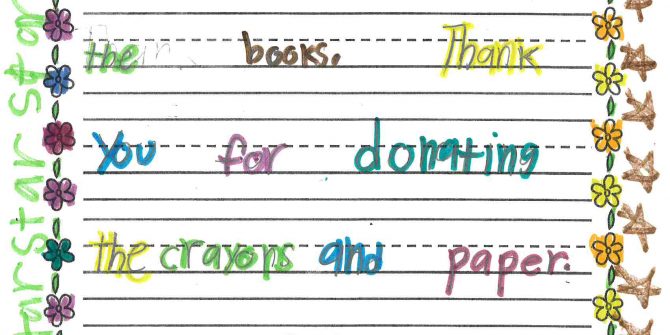 the books. Thank
you for donating
the crayons and paper.
star star star